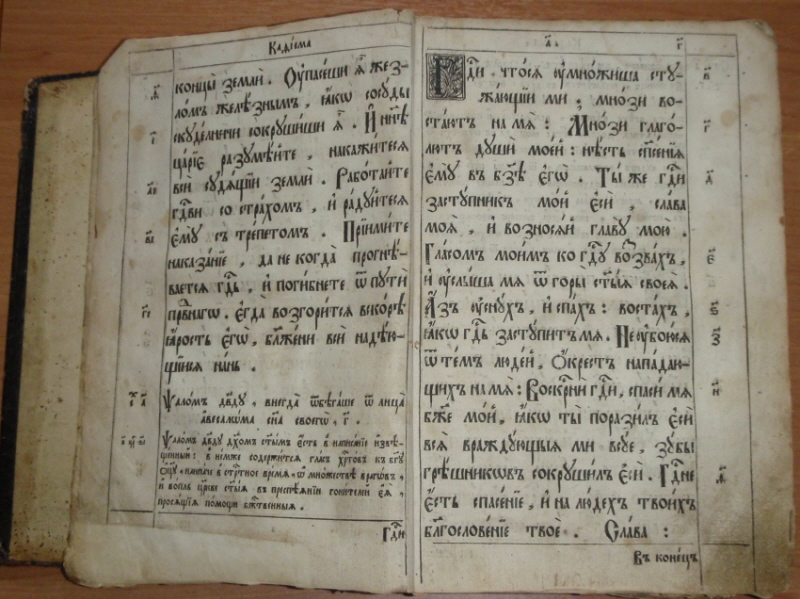 Каѳі́сма
концы̀ землѝ. Оу҆пасе́ши ѧ҆̀ жез-
ло́мъ желѣ́знымъ, ꙗ҆́кѡ сосꙋ́ды
скꙋдє́льничи сокрꙋши́ши ѧ҆̀. И҆ ны́нѣ
ца́рїе разꙋмѣ́йте, накажи́тесѧ
всѝ сꙋдѧ́щїи землѝ. Рабо́тайте
гдⷭ҇ви со стра́хомъ, и҆ ра́дꙋйтесѧ
є҆мꙋ̀ съ тре́петомъ. Прїими́те
наказа́нїе, да не когда̀ прогнѣ́-
ваетсѧ гдⷭ҇ь, и҆ поги́бнете ѿ пꙋтѝ
првⷣнагѡ. є҆гда̀ возгори́тсѧ вско́рѣ
ꙗ҆́рость є҆гѡ̀, бл҃же́ни всѝ надѣ́ю-
щїисѧ на́нь.
Ѱало́мъ дв҃дꙋ, внегда̀ ѿбѣга́ше ѿ лица̀
а҆вессалѡ́ма сн҃а своегѡ̀, г҃.
Ѱало́мъ дв҃дꙋ дх҃омъ ст҃ы́мъ є҆́сть в̾ написа́нїе и҆звѣ-
ще́нный: в̾ не́мже содержи́тсѧ гла́съ хрⷭ҇то́въ къ бг҃ꙋ
ѻ҆ц҃ꙋ̀
вра́гѡвъ,
и҆ во́пль цр҃кве ст҃ы́ѧ
просѧ́щїѧ по́мощи бжⷭ҇твенныѧ.
Гдⷭ҇и
а҃. г҃
Гдⷭ҇и, что́сѧ оу҆мно́жиша стꙋ-
жа́ющїи мѝ; мно́зи во-
стаю́тъ на мѧ̀: Мно́зи глаго́-
лютъ дꙋшѝ мое́й: нѣ́сть сп҃се́нїѧ
є҆мꙋ̀ въ бз҃ѣ є҆гѡ̀. Ты́ же гдⷭ҇и
застꙋ́пникъ мо́й є҆сѝ, сла́ва
моѧ̀, и҆ возносѧ́й главꙋ̀ мою̀.
Гла́сомъ мои́мъ ко гдⷭ҇ꙋ воззва́хъ,
и҆ оу҆слы́ша мѧ̀ ѿ горы̀ ст҃ы́ѧ своеѧ̀.
А҆́зъ оу҆снꙋ́хъ, и҆ спа́хъ: воста́хъ,
ꙗ҆́кѡ гдⷭ҇ь застꙋ́питъ мѧ̀. Не оу҆бою́сѧ
ѿ те́мъ люде́й, ѻ҆́крестъ напада́ю-
щихъ на мѧ̀: Воскрⷭ҇нѝ гдⷭ҇и, спасѝ мѧ̀
бж҃е мо́й, ꙗ҆́кѡ ты̀ порази́лъ є҆сѝ
всѧ̀ враждꙋ́ющыѧ мѝ всꙋ́е, зꙋ́бы
грѣ́шникѡвъ сокрꙋши́лъ є҆сѝ. Гдⷭ҇не
є҆́сть спасе́нїе, и҆ на лю́дехъ твои́хъ
блгⷭ҇ослове́нїе твоѐ. Сла́ва:
Въ коне́цъ